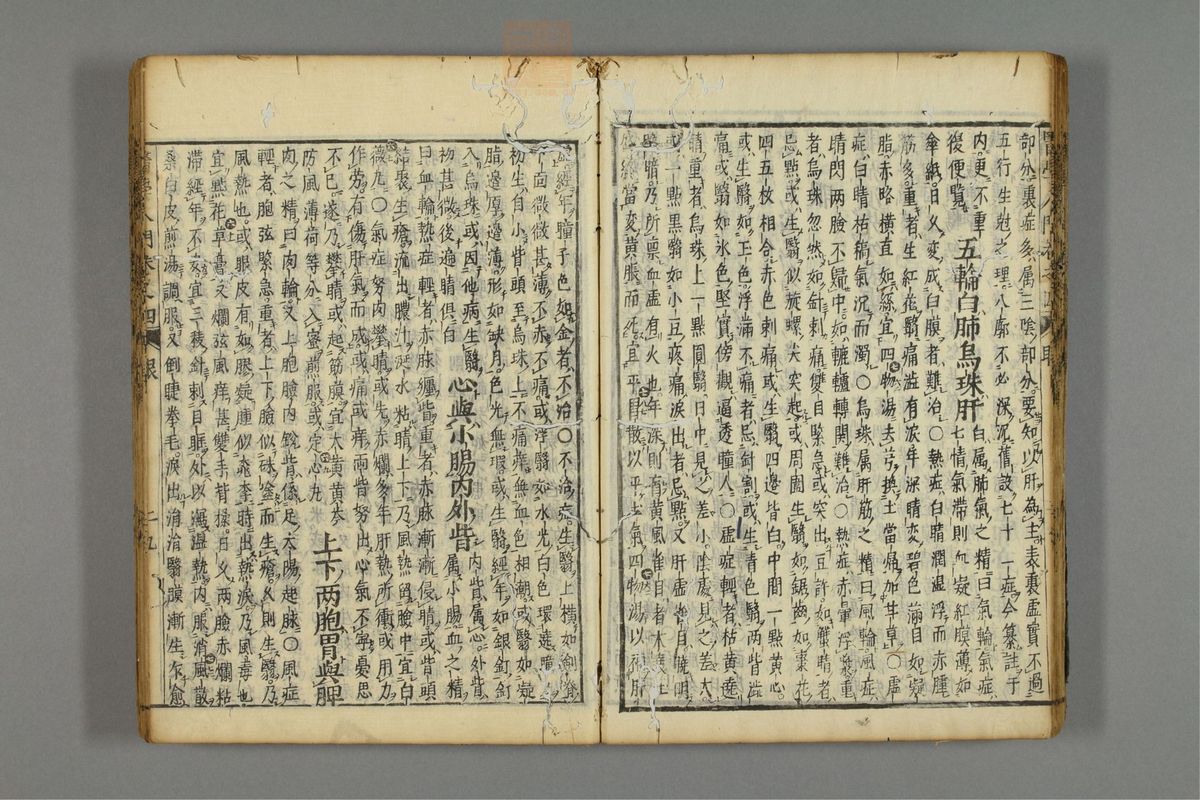 部分外裏症多属三陰部分要知以肝為主表裏虛實不過
五行生尅之理八廓不必深泥舊設七十一症今纂註于
内更不重
後便覽 五輪白肺烏珠肝 白属肺氣之精曰氣輪氣症
七情氣滯則血凝紅膜薄如
傘紙日久變成白膜者難治〇熱症白睛潤濕浮而赤腫
筋多重者生紅花翳痛澁有淚年深睛變碧色滿目如凝
脂赤略橫直如絲宜四物湯去芎換土當歸加甘草〇虛
症白睛枯稿氣沉而濁〇烏珠属肝筋之精曰風輪風症
睛閃兩瞼不
轆轤轉關難治〇熱症赤暈浮
者烏珠忽然如針刺痛雙目緊急或突出豆許如蟹睛者
忌點或生翳似旋螺尖突起或周圍生翳如鋸齒如棗花
四五枚相合赤色刺痛或生翳四邊皆白中間一點黃心
或生翳如玉色浮滿不痛者忌針割或生青色翳兩眥澁
痛或翳如氷色堅實傍觀透瞳人〇虛症輕者枯黃遶
睛重者烏珠上一點圓翳日中見之差小陰處見之差大
或一點黑翳如小豆疼痛淚出者忌點又肝虛者自曉明
暗乃所禀血虛有火也年深則有黃風雀目者木
當變黃脹而死宜平胃散以平土氣四物湯以補肝
經年瞳子色如金者不治〇不治症生翳上橫如劍
下面微微甚薄不赤不痛或浮翳如水光白色環遶瞳
初生自小眥頭至烏珠上不痛無血色相潮或翳如凝
脂邊厚邊薄形如缺月色光無瑕或生翳經年如銀釘釘
入烏珠或因他病生翳
物甚微後遍睛俱白 心與小腸内外眥 内眥属心外眥
属小腸血之精
曰血輪熱症輕者赤脉纏眥重者赤脉漸漸侵睛或眥頭
結聚生瘡流出膿汁涎水粘睛上下乃風熱留瞼中宜白
薇丸〇氣症努肉攀睛或先赤爛多年肝熱所衝或用力
作勞有傷肝氣而成或痛或痒兩眥努出心氣不寧憂思
不已遂乃攀睛或起筋膜宜大黃黃芩
防風薄荷等分入蜜煎服或定心丸 上下兩胞胃與脾
肉之精曰肉輪又上胞瞼内銳眥係足太陽起脉〇風症
輕者胞弦緊急重者上下瞼似硃塗而生瘡久則生翳乃
風熱也或眼皮有如膠凝腫似桃李時出熱淚乃風毒也
宜點花草膏又爛弦風痒甚變手揩摖日久兩瞼赤爛粘
滯經年不安宜三稜針刺目眶外以瀉濕熱内服消風散
桑白皮煎湯調服又倒睫拳毛淚出涓涓翳膜漸生乍愈